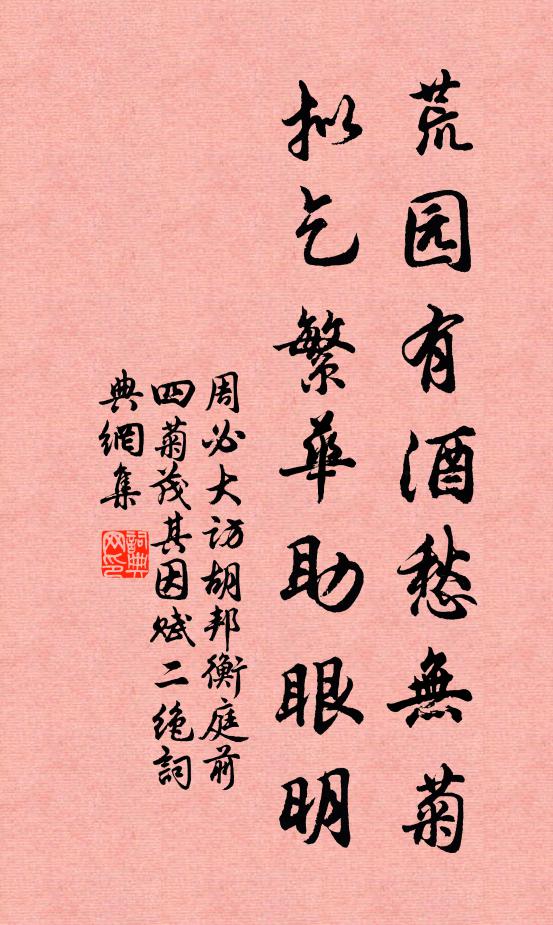 荒园有酒愁無菊
拟乞繁華助眼明
周必大访胡邦衡庭前
四菊茂其因赋二绝詞
典網集
詞典
网印